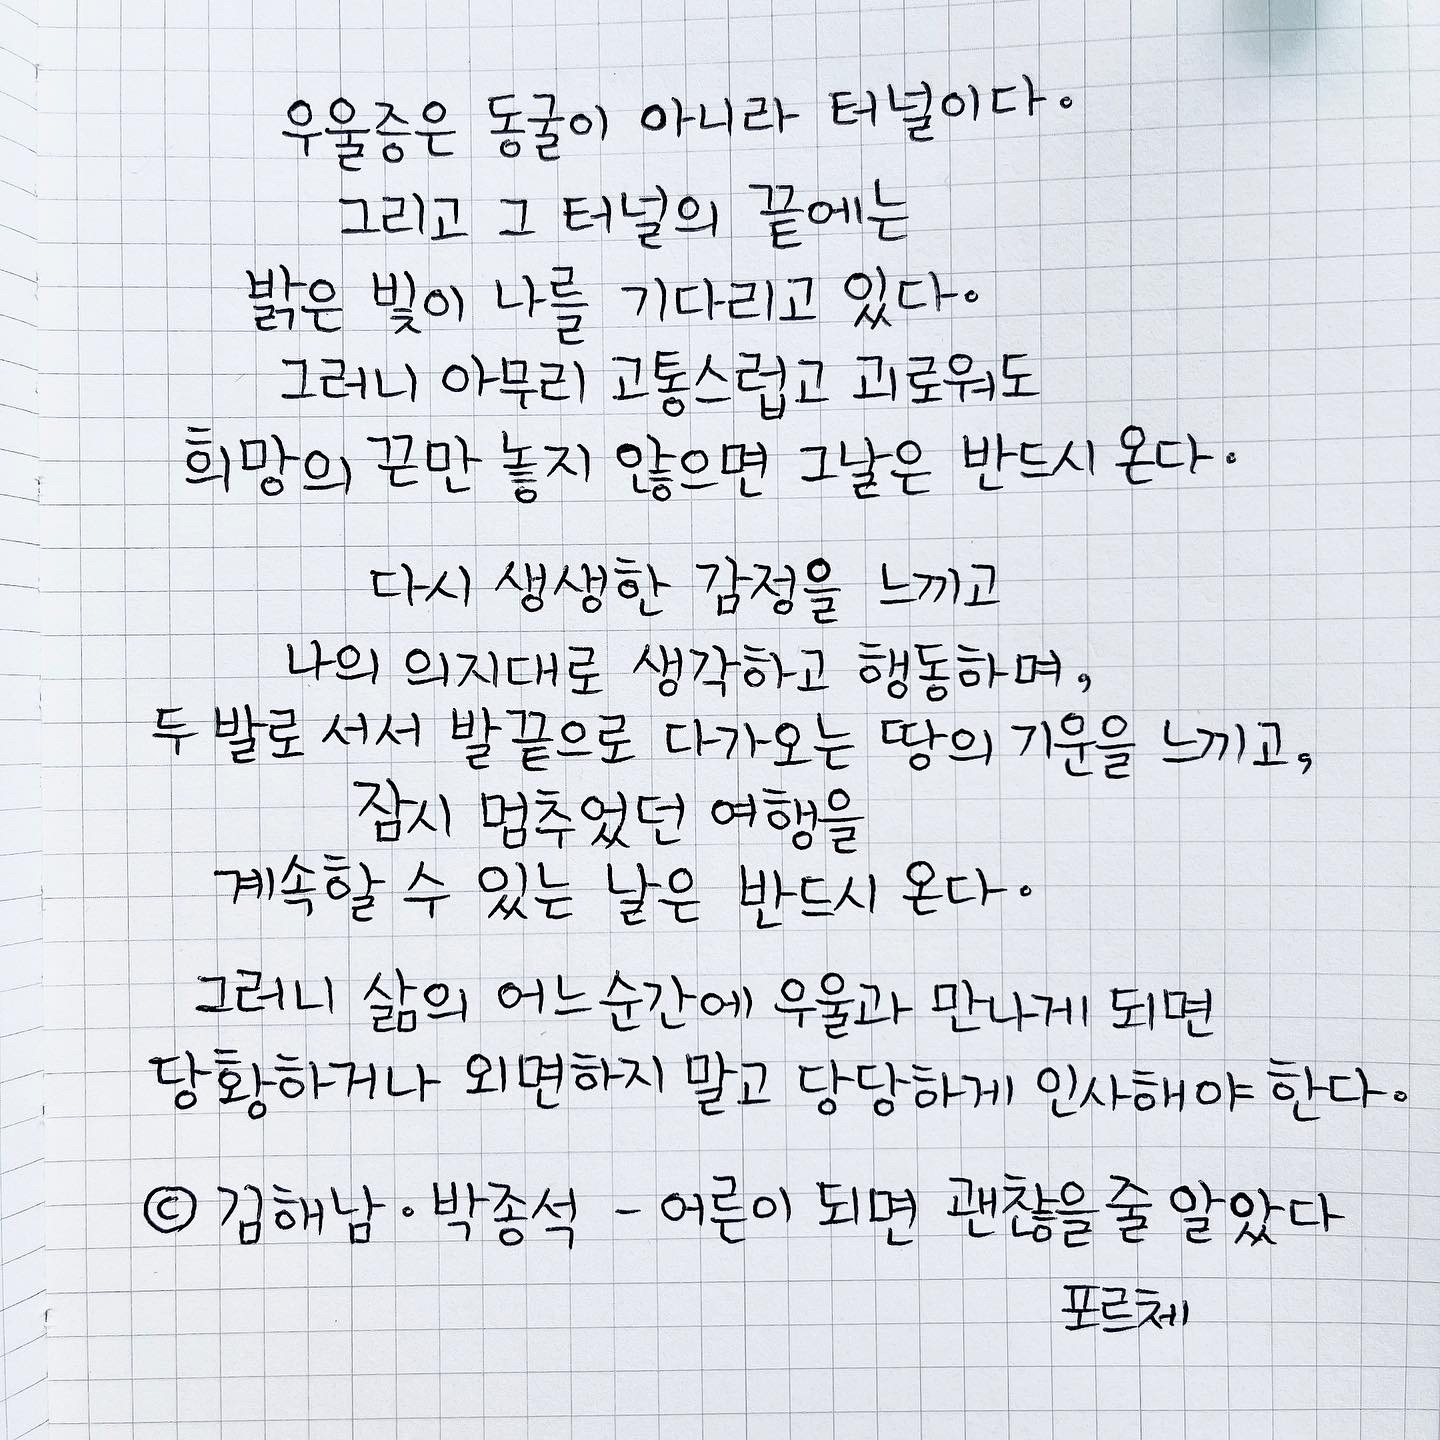 우울증은 동굴이 아니라 터널이다.
그리고 그 터널의 끝에는
밝은 빛이 나를 기다리고 있다.
그러니 아무리 고통스럽고 괴로워도
희망의 끈만 놓지 않으면 그날은 반드시 온다.
다시 생생한 감정을 느끼고
나의 의지대로 생각하고 행동하며,
두 발로 서서 발끝으로 다가오는 땅의 기운을 느끼고,
잠시 멈추었던 여행을
계속할 수 있는 날은 반드시 온다.
그러니 삶의 어느순간에 우울과 만나게 되면
당황하거나 외면하지 말고 당당하게 인사해야 한다.
© 김혜남 · 박종석 - 어른이 되면 괜찮을 줄 알았다
포르체